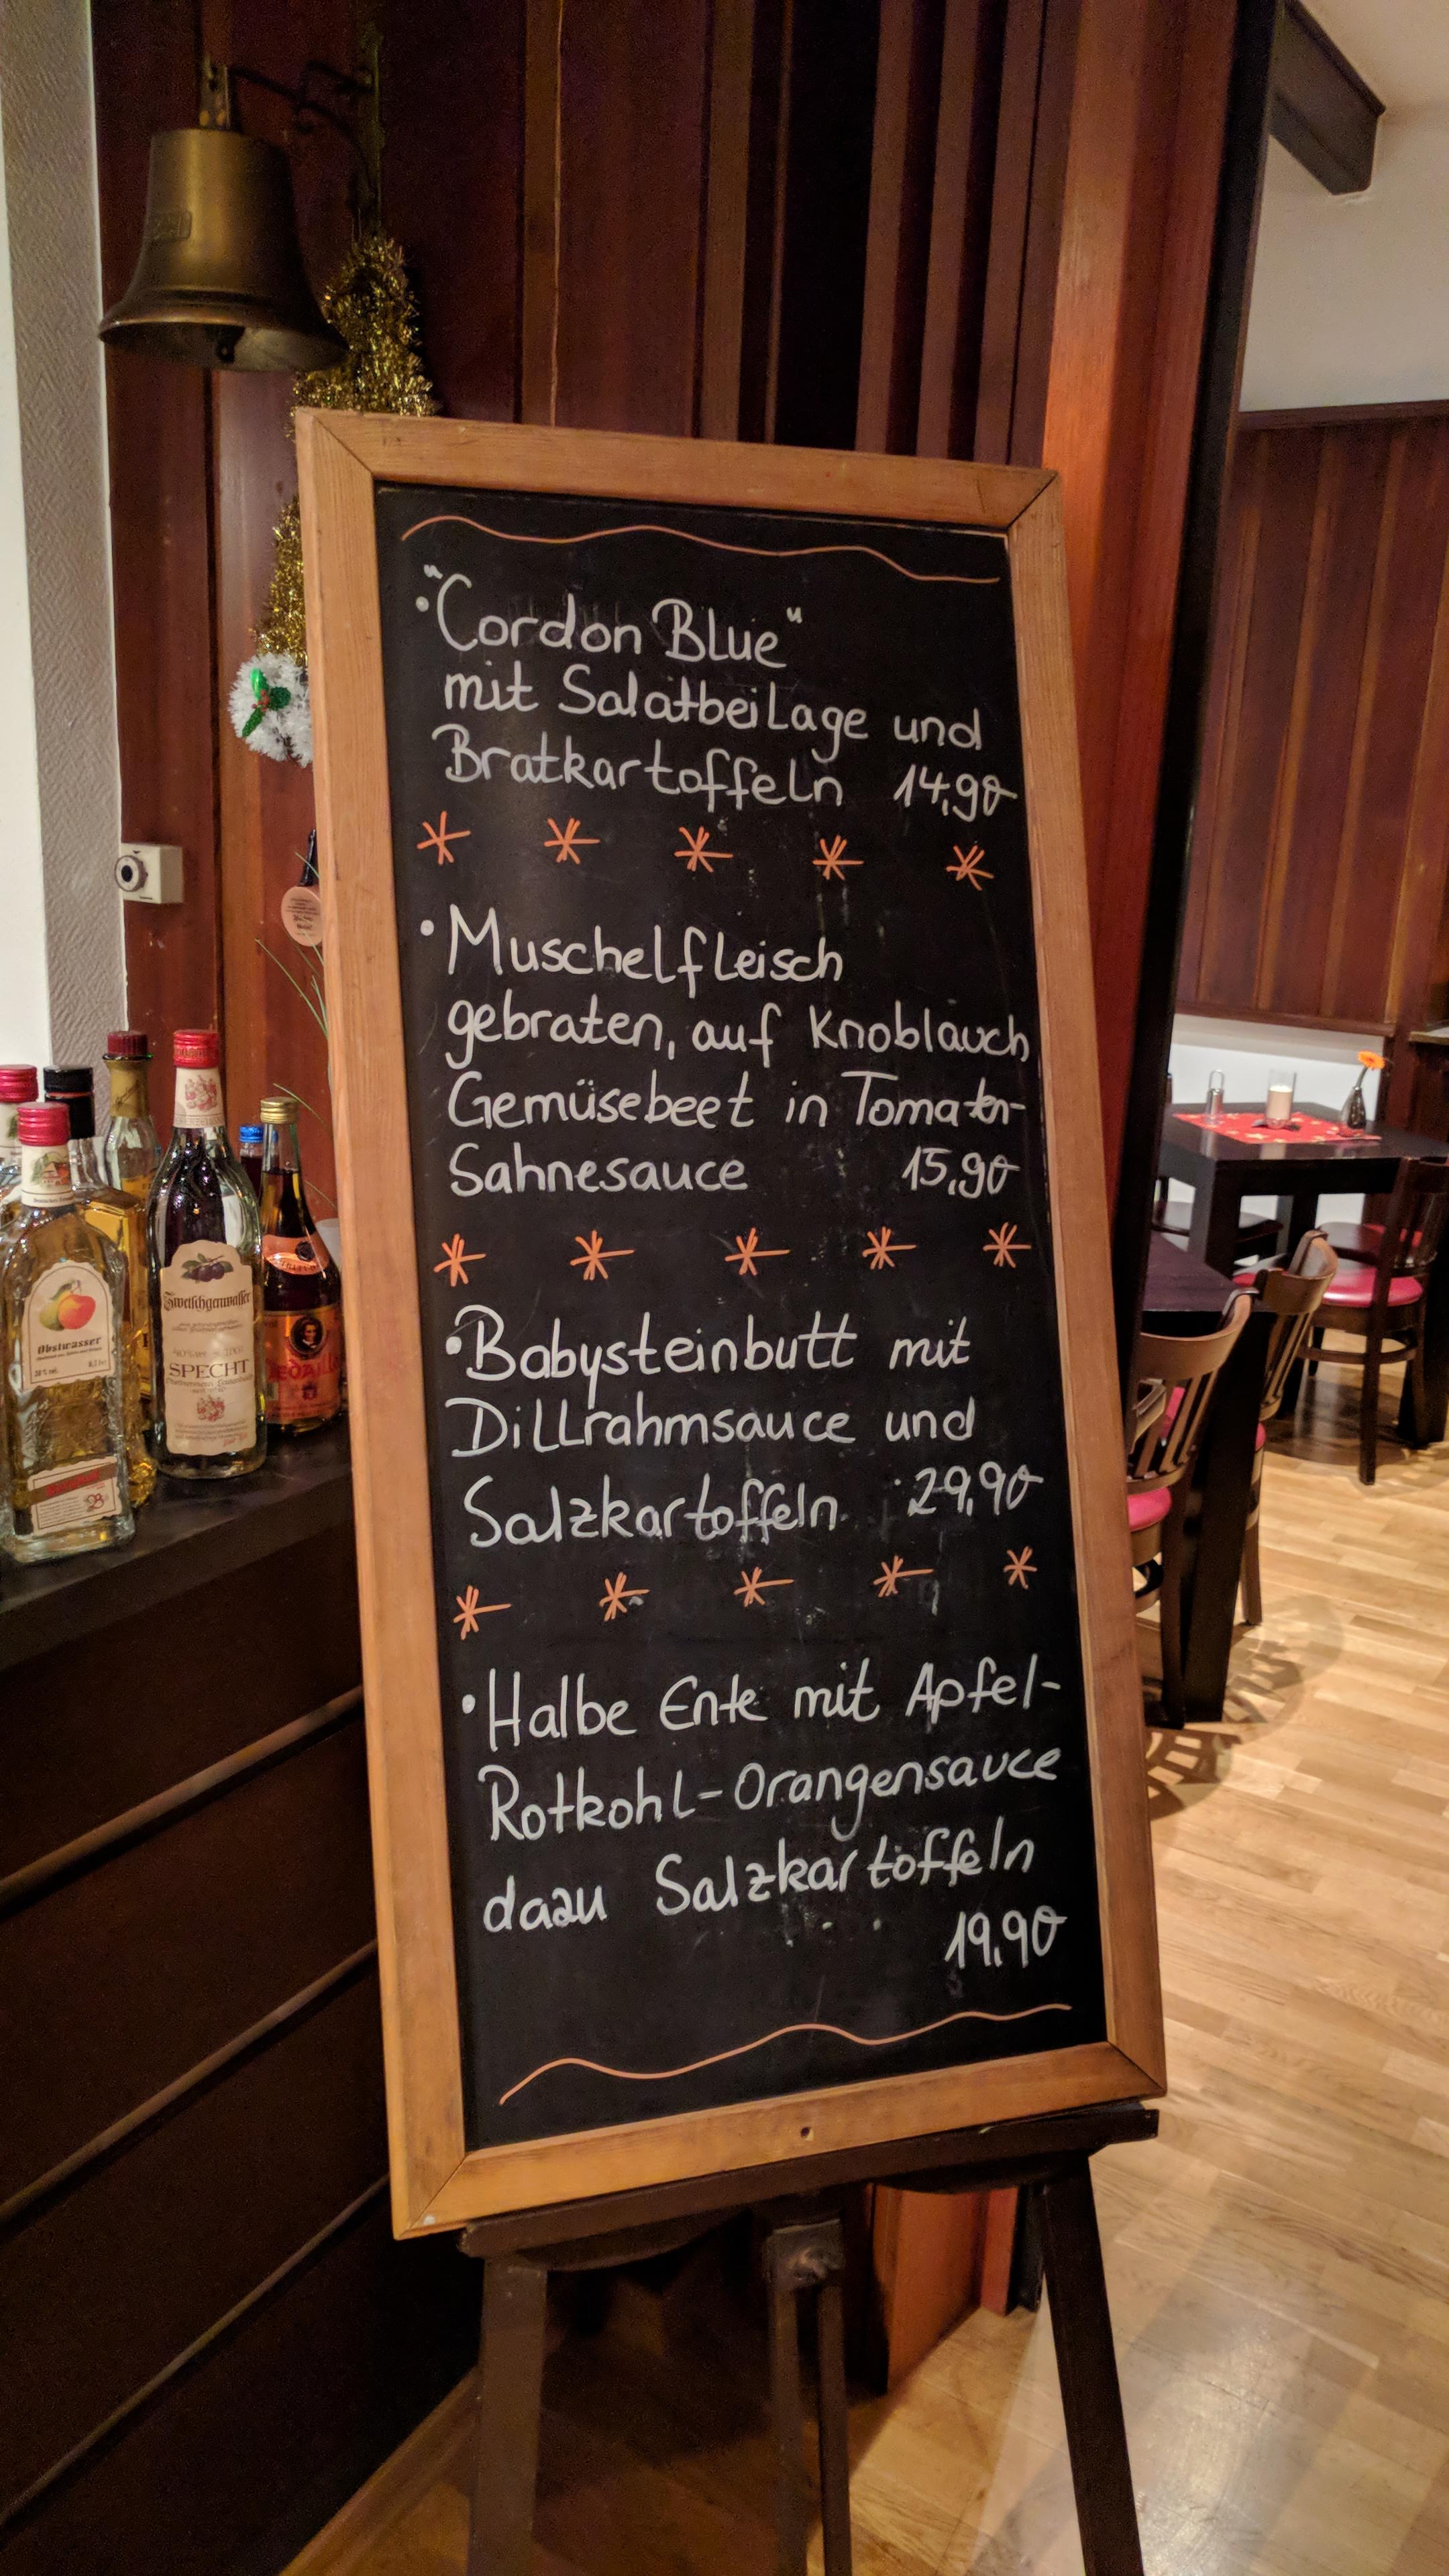 • "Cordon Blue"
mit Salatbeilage und
Bratkartoffeln 14,90
* * * * *
• Muschelfleisch
gebraten, auf Knoblauch
Gemüsebeet in Tomaten-
Sahnesauce 15,90
* * * * *
• Babysteinbutt mit
Dillrahmsauce und
Salzkartoffeln 29,90
* * * * *
• Halbe Ente mit Apfel-
Rotkohl-Orangensauce
dazu Salzkartoffeln
19,90
Obstwasser
Zwetschgenwasser
SPECHT